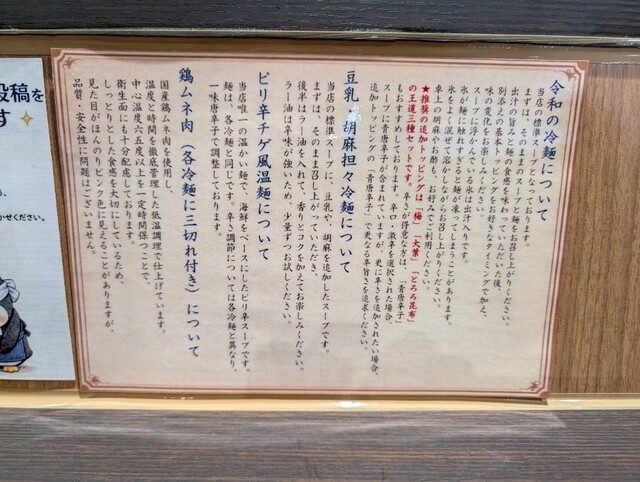 令和の冷麺について
当店の標準スープとなっております。
まずは、そのままのスープと麺をお召し上がりください。
出汁の旨みと麺の食感を味わっていただいた後、
別添えの基本トッピングをお好きなタイミングで加え、
味の変化をお楽しみください。
スープに浮かんでいる氷は出汁入りです。
氷が麺に触れすぎると麺が凍ってしまうことがありますが、
氷をよく混ぜて溶かしながらお召し上がりください。
卓上の胡麻やお酢も、お好みでご利用ください。
★推奨の追加トッピングは「梅」「大葉」「とろろ昆布」
の王道三種セットです。辛さが得意な方は、「青唐辛子」
もおすすめしております。辛口・激辛を選択された場合、
スープに青唐辛子が含まれていますが、更に辛さを追加されたい場合、
追加トッピングの「青唐辛子」で更なる辛旨さを追求ください。
豆乳・胡麻担々冷麺について
当店の標準スープに、豆乳や、胡麻を追加したスープです。
まずは、そのまま召し上がっていただき、
後半はラー油を入れて、香りとコクを加えてお楽しみください。
ラー油は辛味が強いため、少量ずつお試しください。
ピリ辛チゲ風温麺について
当店唯一の温かい麺で、海鮮をベースにしたピリ辛スープです。
麺は、各冷麺と同じです。辛さ調節については各冷麺と異なり、
一味唐辛子で調整しております。
鶏ムネ肉（各冷麺に三切れ付き）について
国産鶏ムネ肉を使用し、
温度と時間を徹底管理した低温調理で仕上げています。
中心温度六五度以上を一定時間保つことで、
衛生面にも十分配慮しております。
しっとりとした食感を大切にしているため、
見た目がほんのりピンク色に見えることがありますが、
品質・安全性に問題はございません。
投稿を
す
かせください。